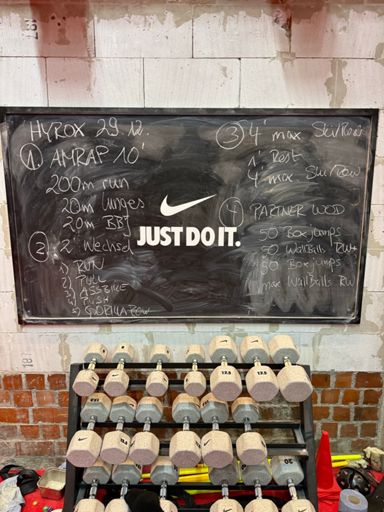 HYROX 29.12.
① AMRAP 10'
200m run
20m lunges
20m BBJ
② 2' Wechsel
1) RUN
2) PULL
3) ASS.BIKE
4) PUSH
5) GORILLA ROW
JUST DO IT.
③ 4' max Ski/Row
1' Rest
4' max Ski/Row
④ PARTNER WOD
50 Box jumps
50 WallBalls RW
50 Box jumps
max WallBalls RW
12.5
12.5